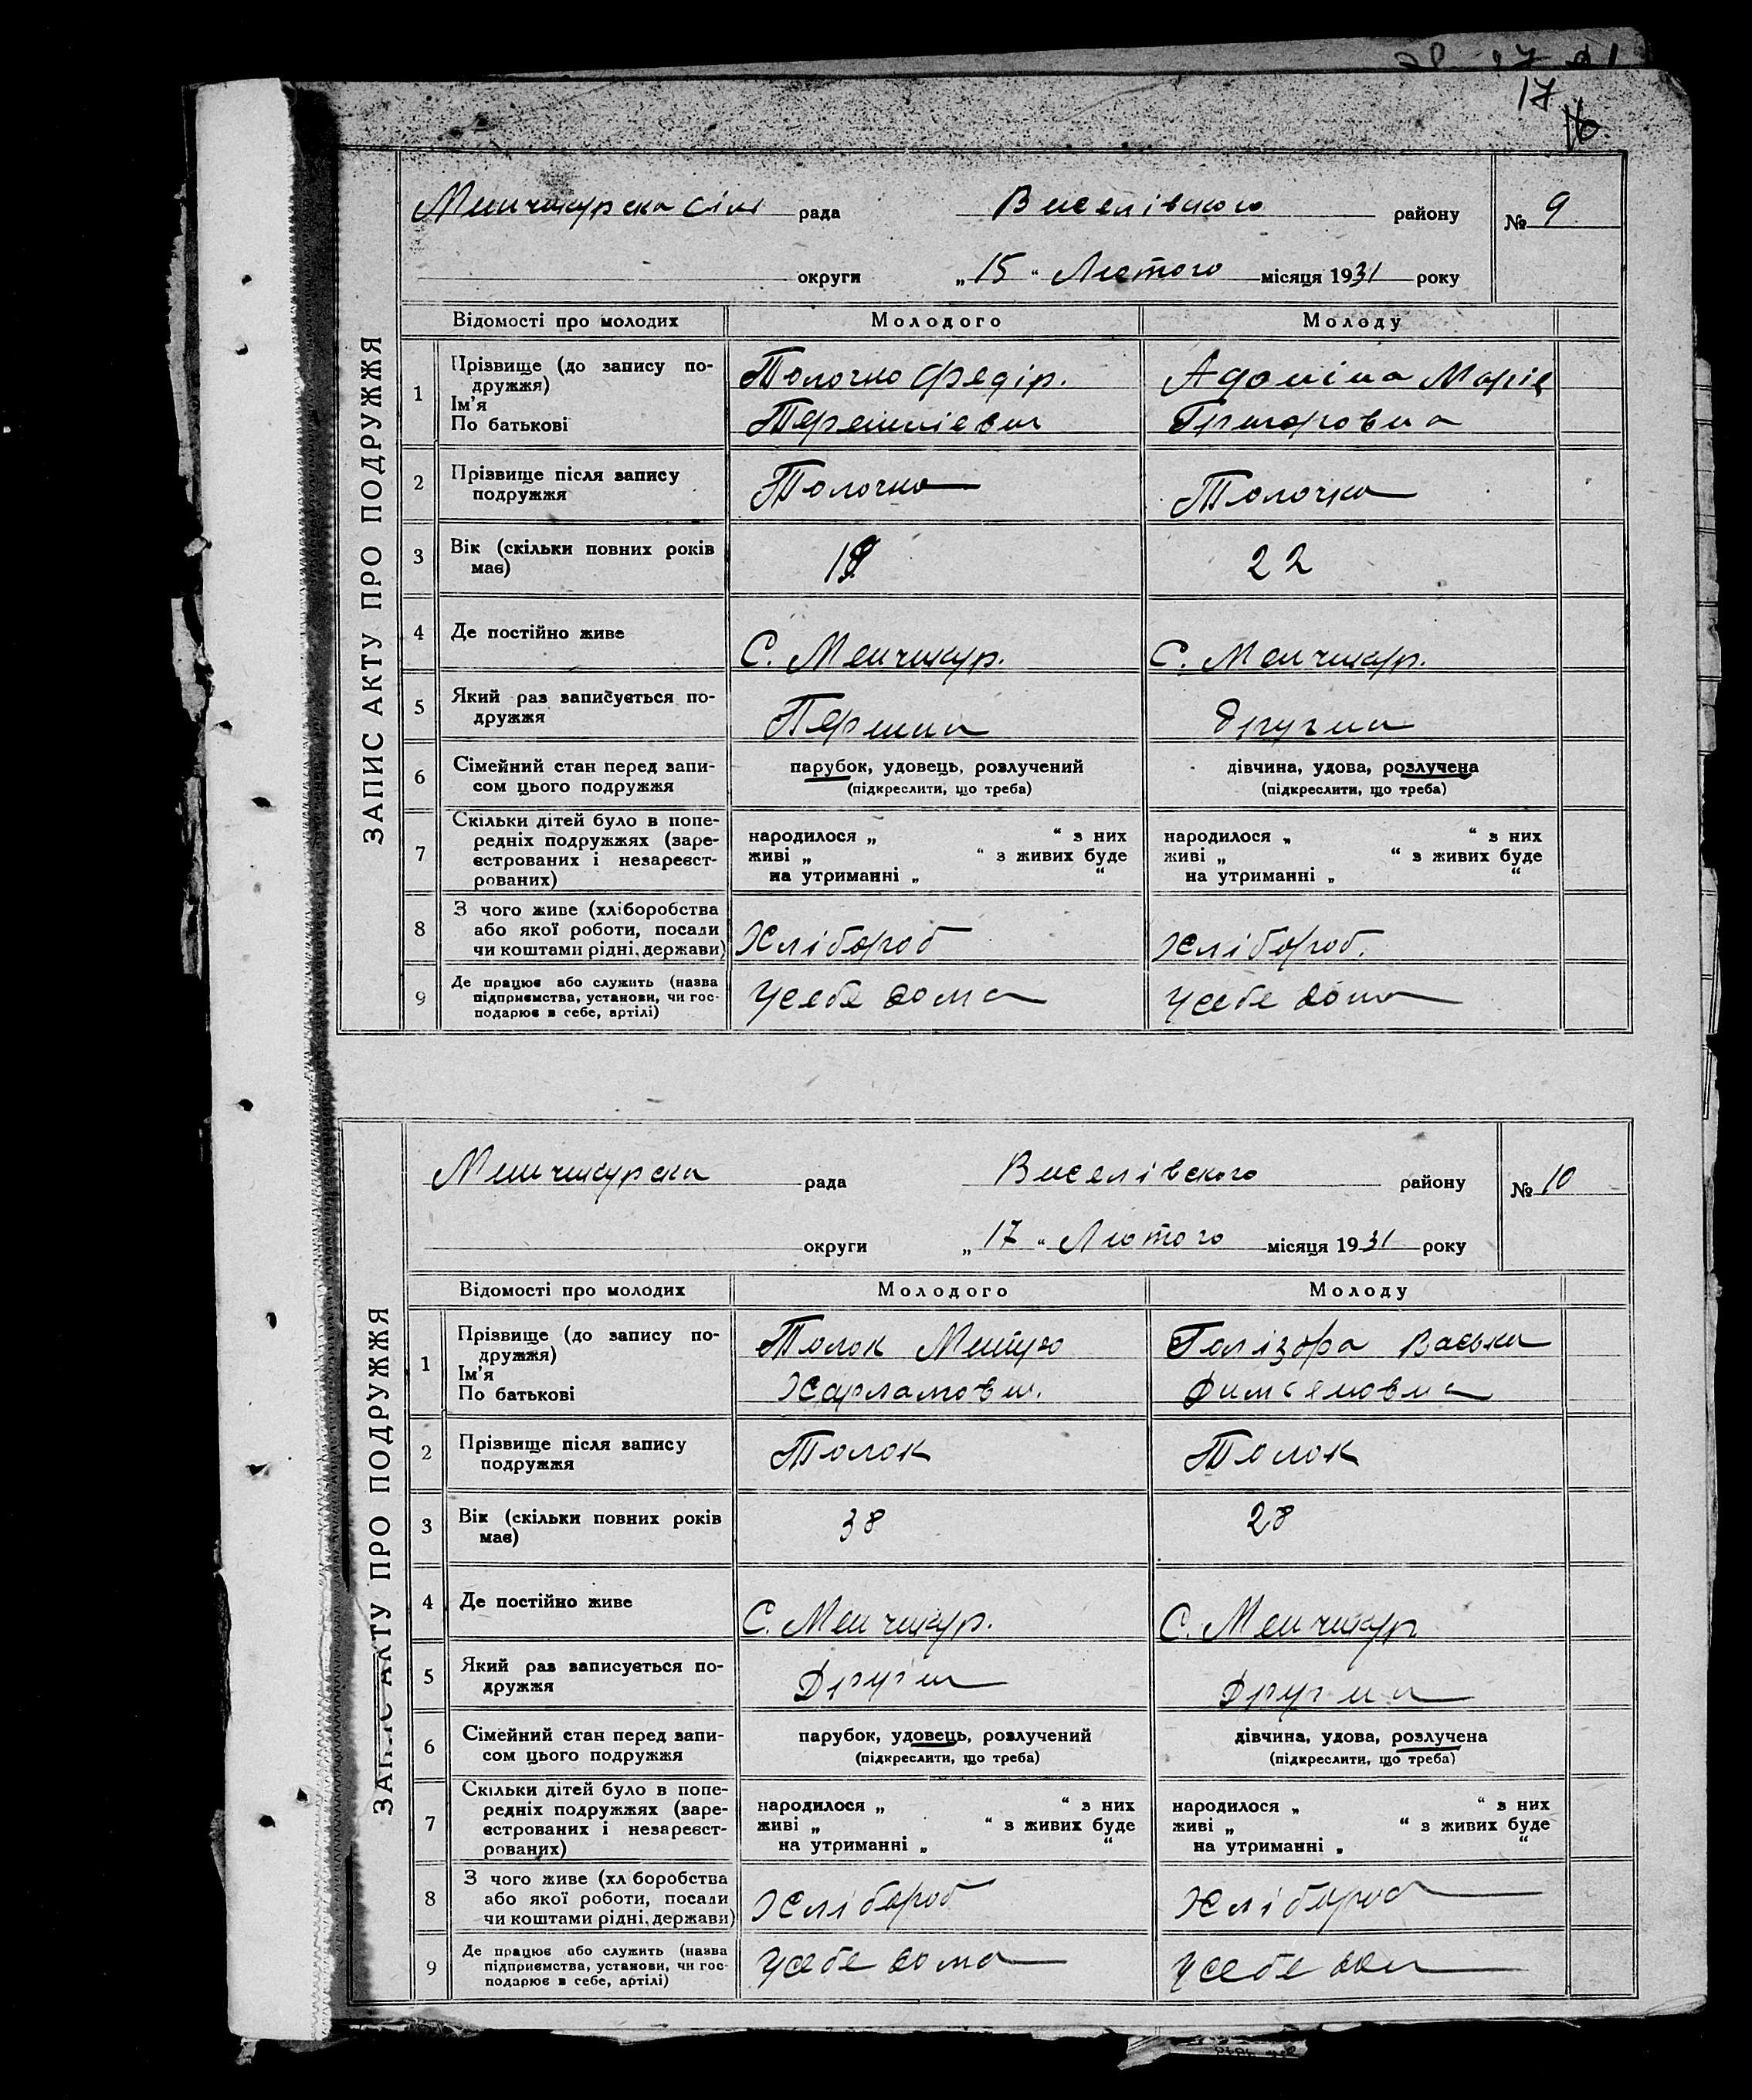 17
16
ЗАПИС АКТУ ПРО ПОДРУЖЖЯ
Менчикурска сіль рада Виселівского району № 9
округи „15“ Лютого місяця 1931 року
Відомості про молодих Молодого Молоду
1 Прізвище (до запису по-
дружжя)
Ім'я
По батькові
Толочко Федір.
Адоніна Марія
Григоровна
2 Прізвище після запису
подружжя
Толочко Толочка
3 Вік (скільки повних років
має)
22
4 Де постійно живе
С. Менчикур. С. Менчикур.
5 Який раз записується по-
дружжя
6 Сімейний стан перед запи-
сом цього подружжя
парубок, удовець, розлучений
(підкреслити, що треба)
дівчина, удова, розлучена
(підкреслити, що треба)
7 Скільки дітей було в попе-
редніх подружжях (заре-
єстрованих і незареєст-
рованих)
народилося „ “ з них
живі „ “ з живих буде
на утриманні „ “
народилося „ “ з них
живі „ “ з живих буде
на утриманні „ “
8 З чого живе (хліборобства
або якої роботи, посади
чи коштами рідні, держави)
Хлібороб Хлібороб.
9 Де працює або служить (назва
підприємства, установи, чи гос-
подарює в себе, артілі)
Усебе дома Усебе дома
ЗАПИС АКТУ ПРО ПОДРУЖЖЯ
Менчикурска рада Виселівского району № 10
округи „17“ Лютого місяця 1931 року
Відомості про молодих Молодого Молоду
1 Прізвище (до запису по-
дружжя)
Ім'я
По батькові
Толок
Харламович.
Васька
2 Прізвище після запису
подружжя
Толок Толок
3 Вік (скільки повних років
має)
38 28
4 Де постійно живе
С. Менчикур. С. Менчикур
5 Який раз записується по-
дружжя
6 Сімейний стан перед запи-
сом цього подружжя
парубок, удовець, розлучений
(підкреслити, що треба)
дівчина, удова, розлучена
(підкреслити, що треба)
7 Скільки дітей було в попе-
редніх подружжях (заре-
єстрованих і незареєст-
рованих)
народилося „ “ з них
живі „ “ з живих буде
на утриманні „ “
народилося „ “ з них
живі „ “ з живих буде
на утриманні „ “
8 З чого живе (хл боробства
або якої роботи, посади
чи коштами рідні, держави)
Хлібороб Хлібороб
9 Де працює або служить (назва
підприємства, установи, чи гос-
подарює в себе, артілі)
Усебе дома Усебе